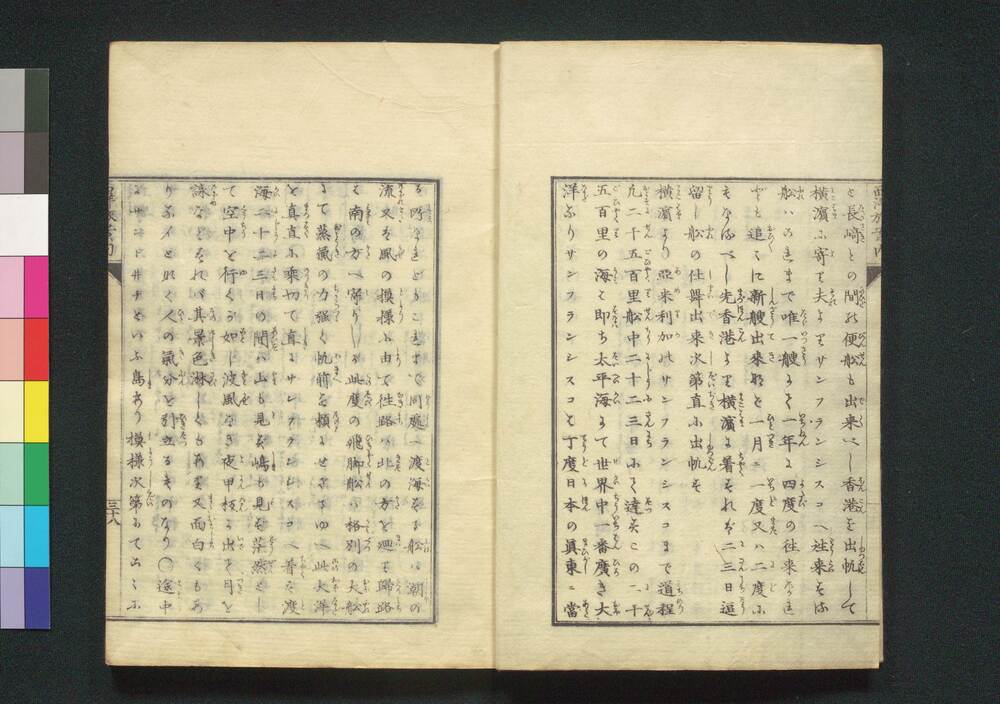 と長崎との間の便船も出来べし香港を出帆して
横濱に寄て夫よりサンフランシスコへ往来する
船ハこれまで唯一艘にて一年に四度の往来なれ
ども追々に新艘出来ると一月ニ一度又ハ二度に
もなるべし先香港より横濱に着それゟ二三日逗
留し船の仕舞出来次第直に出帆す
横濱より亞米利加のサンフランシスコまで道程
凡二千五百里船中二十二三日にて達す此の二千
五百里の海ハ即ち太平海にて世界中一番廣き大
洋なりサンフランシスコと丁度日本の眞東ニ當
る所なれどもこれまで同處へ渡海する船ハ潮の
流又ハ風の模様に由て往路ハ北の方を廻り歸路
ハ南の方へ寄りしが此度の飛脚船ハ格別の大船
にて蒸氣の力強く帆前を頼にせざるゆへ此大洋
を真直に乗切て直にサンフランシスコへ着す渡
海二十二三日の間ハ山も見え嶋も見え茫然とし
て空中を行くが如し波風なき夜甲板に出て月を
詠などすれバ其景色淋しくもあり又面白くもあ
り
人の氣分を引立るものなり〇途中
といふ島あり模様次第にてここに
三十八